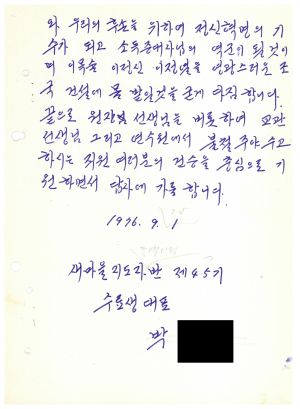 와 우리의 후손을 위하여 정신혁명의 기
수가 되고 소득증대사업의 역군이 될것이
며 이 이전신 이정열을 영광스러운 조
국 건설에 몸 받일것을 굳게 다짐합니다.
끝으로 원장님 선생님을 비롯하여 교관
선생님 그리고 연수원에서 불철 주야 수고
하시는 직원 여러분의 건승을 충심으로 기
원하면서 답사에 가름합니다.
1976. 9. 1
새마을지도자반 제45기
수료생 대표
박